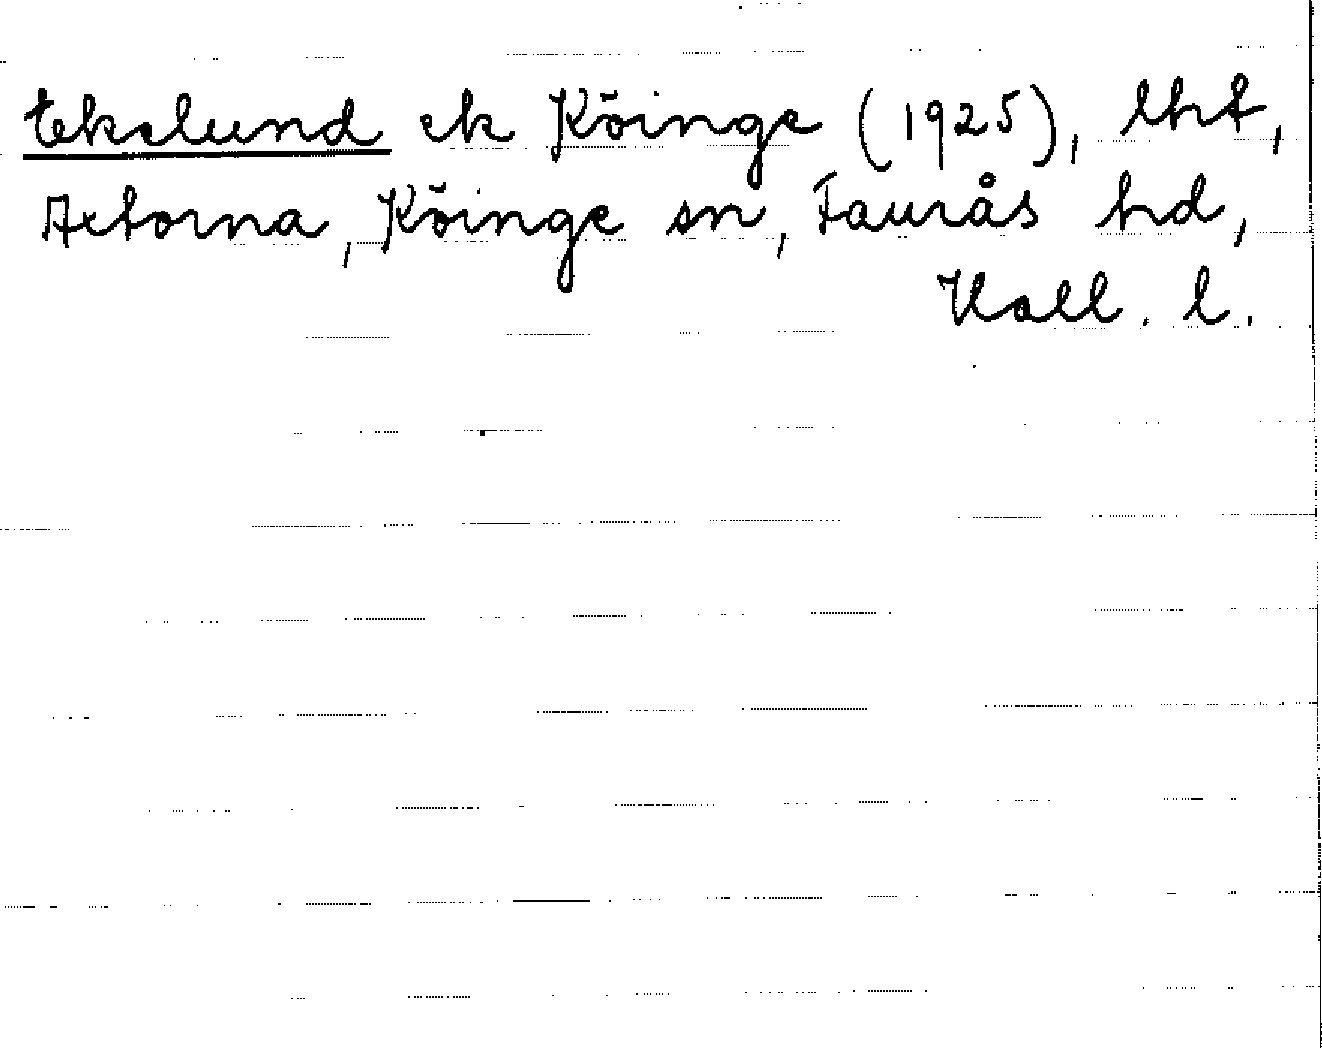 Ekelund ek Köinge (1925), lht,
Axtorna, Köinge sn, Faurås hd,
Hall. l.